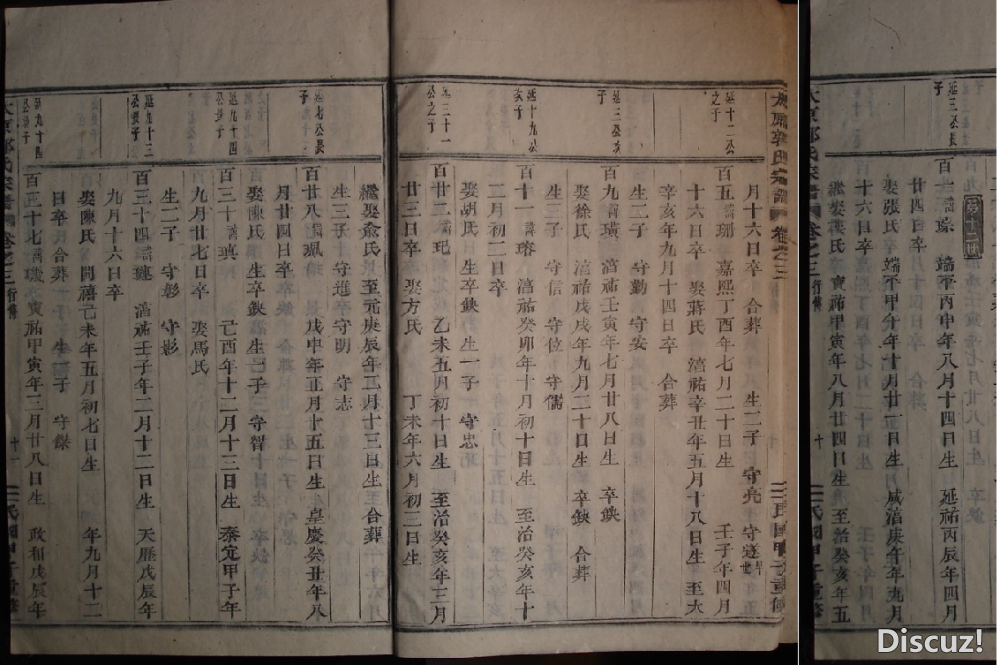 延三公長子
百十二
瑔 端平丙申年八月十四日生 延祐丙辰年四月
娶張氏 端平甲午年十月廿一日生 咸淳庚午年九月
十六日卒
繼娶葉氏 寶祐甲寅年八月廿四日生 至治癸亥年五
太原郭氏宗譜 卷之三 行傳 十 民國甲子重修
太原郭氏宗譜 卷之三 十 民國甲子重修
月十六日卒 合葬 生二子 守亮 守逺 早世
延十二公之子
百五 諱珊 嘉熙丁酉年七月二十日生 壬子年四月
十六日卒 娶蔣氏 淳祐辛丑年五月十八日生 至大
辛亥年九月十四日卒 合葬
生二子 守勤 守安
延三公次子
百九 諱璜 淳祐壬寅年七月廿八日生 卒缺
娶徐氏 淳祐戊戌年九月二十日卒缺 合葬
生三子 守信 守位 守儒
延十九公次子
百十一 諱瑢 淳祐癸卯年十月初十日生 至治癸亥年十
二月初二日卒
娶胡氏 生卒缺 生一子 守忠
延三十一公之子
百廿二 諱玘 乙未五月初十日生 至治癸亥年三月
廿三日卒 娶方氏 丁未年六月初三日生
繼娶俞氏 至元庚辰年二月十三日生 合葬
生三子 守進 守明 守志
延七公長子
百廿八 諱珮 戊申年正月十五日生 皇慶癸丑年八
月廿四日卒
娶陳氏 生卒缺 生一子 守智
延九十四公長子
百三十 諱瑱 己酉年十二月十三日生 泰定甲子年
九月廿七日卒 娶馬氏
生二子 守彰 守影
延九十三公長子
百三十四 諱璉 淳祐壬子年二月十二日生 天曆戊辰年
九月十六日卒
娶陳氏 開禧己未年五月初七日生 年九月十二
日卒 合葬 生一子 守錄
延九十四公次子
百三十七 諱 寶祐甲寅年三月廿八日生 政和戊辰年
太原郭氏宗譜 卷之三 行傳 十一 民國甲子重修
Discuz!